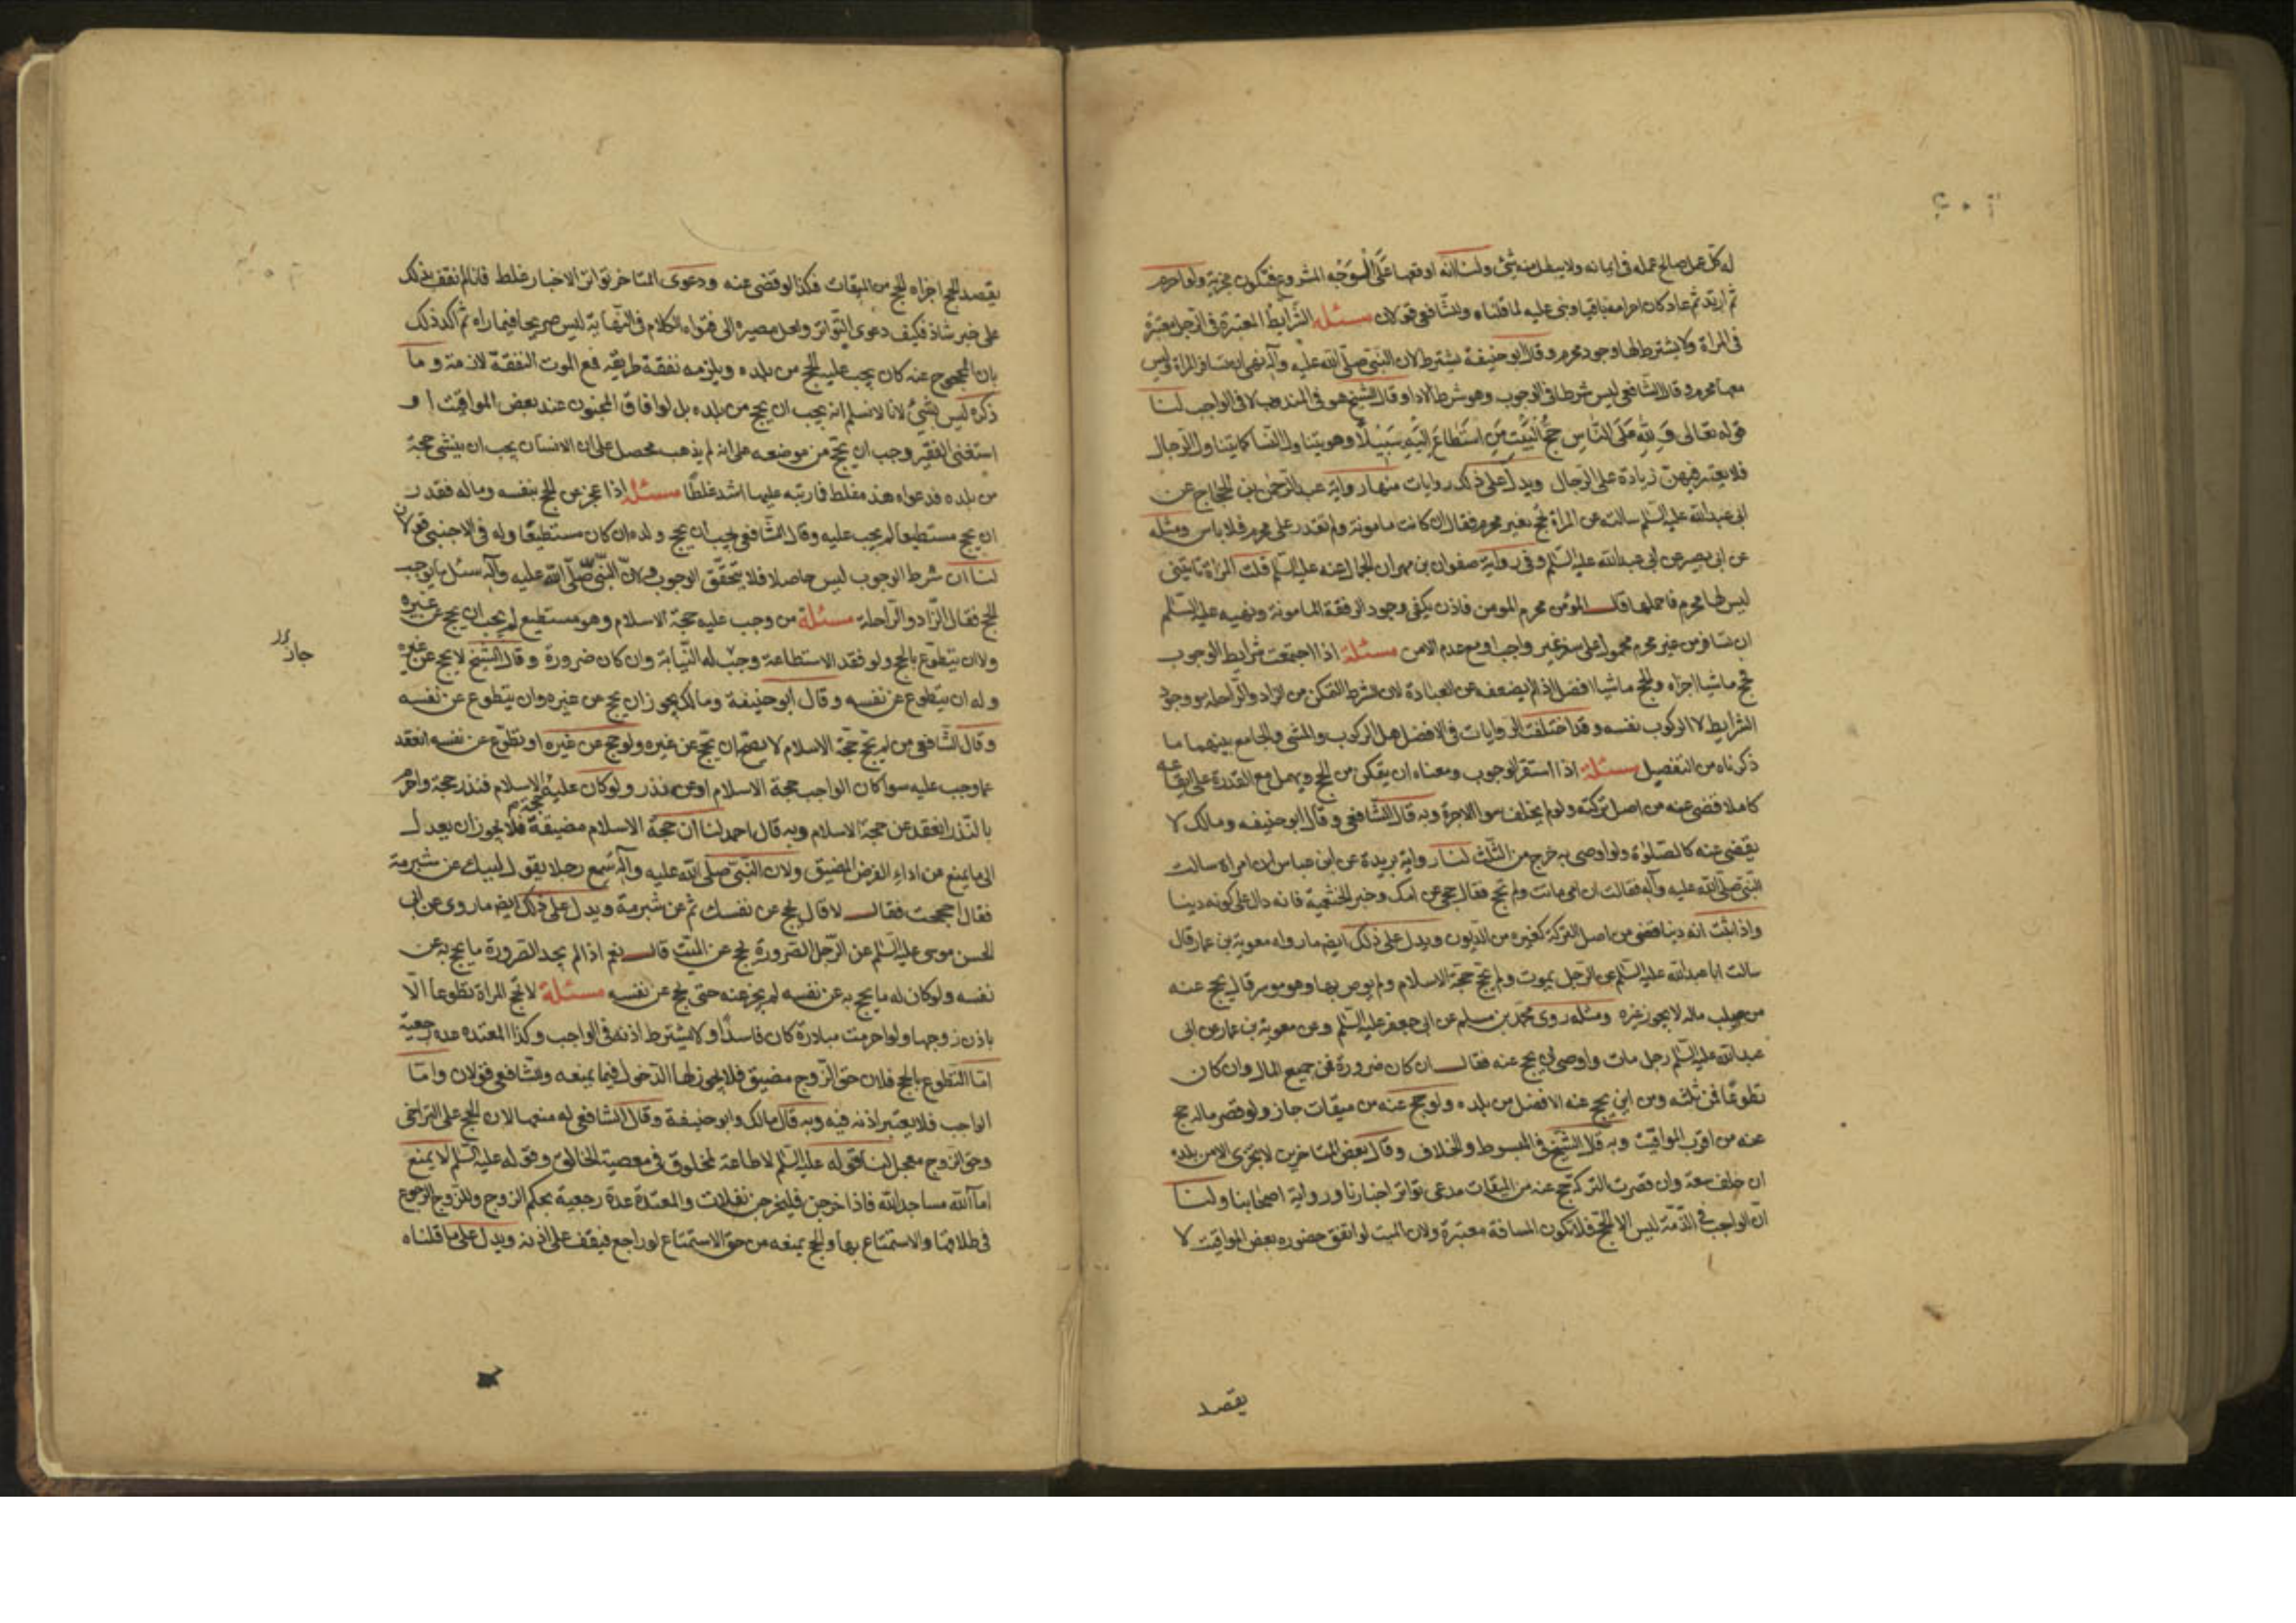 له كل عمل صالح عمله في ايمانه ولا يبطل منه شيئ ولنا انه اوقعها على الوجه المشروع فتكون مجزية ولو احرم
ثم ارتد ثم عاد كان احرامه باقيا وبنى عليه لما قلناه وللشافعي قولان مسئلة الشرايط المعتبرة في الرجل معتبرة
في المراة ولا يشترط لها وجود محرم وقال ابو حنيفة يشترط لان النبي صلى الله عليه وآله نهى ان تسافر المراة وليس
معها محرم وقال الشافعي ليس شرطا في الوجوب وهو شرط الادا وقال الشيخ هو في المندوب لا في الواجب لنا
قوله تعالى وَ لِلّٰهِ عَلَى النَّاسِ حِجُّ الْبَيْتِ مَنِ اسْتَطَاعَ اِلَيْهِ سَبِيْلًا وهو يتناول النسا كما يتناول الرجال
فلا يعتبر فيهن زيادة على الرجال ويدل على ذلك روايات منها رواية عبد الرحمن بن الحجاج عن
ابي عبد الله عليه السلم سالته عن المراة تحج بغير محرم فقال ان كانت مامونة ولم تقدر على محرم فلا باس ومثله
عن ابي بصير عن ابي عبد الله عليه السلم وفي رواية صفوان بن مهران الجمال عنه عليه السلم قلت المراة تاتيني
ليس لها محرم فاحملها قال المؤمن محرم المومن فاذن يكفي وجود الرفقة المامونة ونهيه عليه السلم
ان تسافر من غير محرم محمول على سفر غير واجب او مع عدم الامن مسئلة اذا اجتمعت شرايط الوجوب
فحج ماشيا اجزاه والحج ماشيا افضل اذا لم يضعف عن العبادة لان الشرط التمكن من الزاد والراحلة ووجود
الشرايط لا الركوب نفسه وقد اختلفت الروايات في الافضل هل الركوب والمشي والجامع بينهما ما
ذكرناه من التفصيل مسئلة اذا استقر الوجوب ومعناه ان يتمكن من الحج ويهمل مع القدرة على ايقاعه
كاملا قضي عنه من اصل تركته ولو لم يخلف سوا الاجرة وبه قال الشافعي وقال ابو حنيفه ومالك لا
يقضى عنه كالصلوة ولو اوصى به خرج من الثلث لنا رواية بريدة عن ابن عباس ان امراة سالت
النبي صلى الله عليه وآله فقالت ان امي ماتت ولم تحج فقال حجي عن امك وخبر الخثعمية فانه دال على كونه دينا
واذا ثبت انه دينا قضي من اصل التركة كغيره من الديون ويدل على ذلك ايضا ما رواه معوية بن عمار قال
سالت ابا عبد الله عليه السلم عن الرجل يموت ولم يحج حجة الاسلام ولم يوص بها وهو موسر قال يحج عنه
من صلب ماله لا يجوز غيره ومثله روى محمد بن مسلم عن ابي جعفر عليه السلم وعن معوية بن عمار عن ابي
عبد الله عليه السلم رجل مات واوصى ان يحج عنه فقال ان كان ضرورة فمن جميع المال وان كان
تطوعا فمن ثلثه ومن اين يحج عنه الافضل من بلده ولو حج عنه من ميقات جاز ولو قصر ماله حج
عنه من اقرب المواقيت وبه قال الشيخ في المبسوط والخلاف وقال بعض المتاخرين لا يجزى الا من بلده
ان خلف سعة وان قصرت التركة حج عنه من الميقات مدعي تواتر اخبارنا ورواية اصحابنا ولنا
ان الواجب في الذمة ليس الا الحج فلا تكون المسافة معتبرة ولان الميت لو اتفق حضوره بعض المواقيت لا
يقصد
يقصد الحج اجزاه الحج من الميقات فكذا لو قضي عنه ودعوى المتاخر تواتر الاخبار غلط فانا لم نقف بذلك
على خبر شاذ فكيف دعوى التواتر الكلام في النهاية ليس صريحا فيما راه ثم اكد ذلك
بان المحجوج عنه كان يجب عليه الحج من بلده ويلزمه نفقة طريقه فمع الموت النفقة لازمة وما
ذكره ليس بشئ لانا لا نسلم انه يجب ان يحج من بلده بل لو افاق المجنون عند بعض المواقيت او
استغنى الفقير وجب ان يحج من موضعه على انه لم يذهب محصل على ان الانسان يجب ان ينشى حجة
من بلده فدعواه هذه غلط فا رتبه عليها اشد غلطا مسئلة اذا عجز عن الحج بنفسه وماله فقد ر
ان يحج مستطيعا لم يجب عليه وقال الشافعي يجب ان يحج ولده ان كان مستطيعا وله في الاجنبي قولان
لنا ان شرط الوجوب ليس حاصلا فلا يتحقق الوجوب ولان النبي صلى الله عليه وآله سئل ما يوجب
الحج فقال الزاد والراحلة مسئلة من وجب عليه حجة الاسلام وهو مستطيع لم يجب ان يحج عن غيره
ولا ان يتطوع بالحج ولو فقد الاستطاعة وجب له النيابة وان كان ضرورة وقال الشيخ لا يحج عن غيره
وله ان يتطوع عن نفسه وقال ابو حنيفة ومالك يجوز ان يحج عن غيره وان يتطوع عن نفسه
جاز
وقال الشافعي من لم يحج حجة الاسلام لا يصح ان يحج عن غيره ولو حج عن غيره او تطوع عن نفسه انعقد
عما وجب عليه سوا كان الواجب حجة الاسلام او عن نذر ولو كان عليه حجة الاسلام فنذر حجة واحرم
بالنذر انعقد عن حجة الاسلام وبه قال احمد لنا ان حجة الاسلام مضيقة فلا يجوز ان يعدل
الى ما يمنع من اداء الفرض المضيق ولان النبي صلى الله عليه وآله سمع رجلا يقول لبيك عن شبرمة
فقال احججت فقال لا قال حج عن نفسك ثم عن شبرمة ويدل على ذلك ايضا ما روى عن ابي
الحسن موسى عليه السلم عن الرجل الصرورة يحج عن الميت قال نعم اذا لم يجد الصرورة ما يحج به عن
نفسه ولو كان له ما يحج به عن نفسه لم يجز عنه حتى يحج عن نفسه مسئلة لا تحج المراة تطوعا الا
باذن زوجها ولو احرمت مبادرة كان فاسدا ولا يشترط اذنه في الواجب وكذا المعتده عده رجعية
اما التطوع بالحج فلان حق الزوج مضيق فلا يجوز لها الدخول فيما يمنعه وللشافعي قولان واما
الواجب فلا يعتبر اذنه فيه وبه قال مالك وابو حنيفة وقال الشافعي له منعها لان الحج على التراخي
وحق الزوج معجل لنا قوله عليه السلم لا طاعة لمخلوق في معصية الخالق وقوله عليه السلم لا يمنع
اماء الله مساجد الله فاذا خرجن فليخرجن تفلات والمعتدة عدة رجعية بحكم الزوج وللزوج الرجوع
في طلاقها والاستمتاع بها والحج يمنعه من حق الاستمتاع لو راجع فيقف على اذنه ويدل على ما قلناه